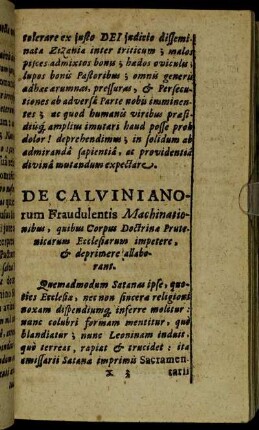 tolerare ex justo DEI judicio dissemi-
nata Zizania inter triticum; malos
pisces admixtos bonis; hædos oviculis
lupos bonis Pastoribus; omnis generis
adhæc ærumnas, pressuras, & Persecu-
tiones ab adversâ Parte nobis imminen-
tes; ac quod humanis viribus præsi-
diisq; amplius imutari haud posse proh
dolor! deprehendimus; in solidum ab
admirandâ sapientiâ, ac providentiâ
divinâ mutandum expectare.
DE CALVINIANO-
rum Fraudulentis Machinatio-
nibus, quibus Corpus Doctrinæ Prute-
nicarum Ecclesiarum impetere,
& deprimere allabo-
rant.
Quemadmodum Satanas ipse, quo-
ties Ecclesiæ, nec non sinceræ religioni
noxam dispendiumq; inferre molitur:
nunc colubri formam mentitur, quo
blandiatur; nunc Leoninam induit,
quo terreat, rapiat & trucidet: ita
emissarii Satanæ imprimis Sacramen-
x 3 tarii